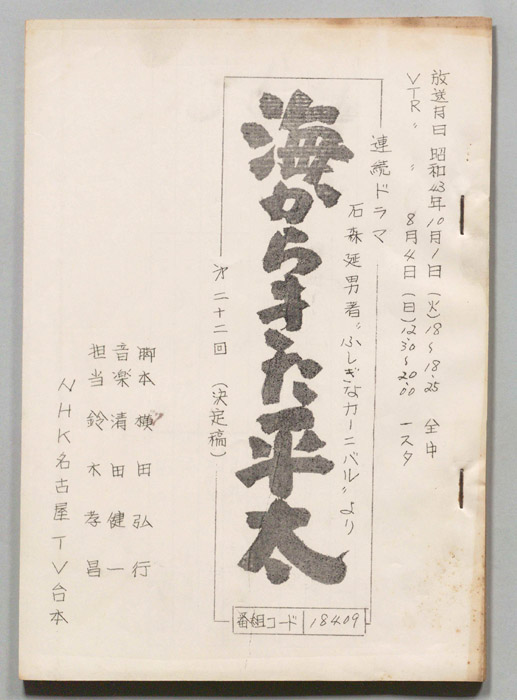 放送月日 昭和43年10月1日(火)18〜18.25 全中
VTR 〃 〃 8月4日(日)12.30〜20.00 一スタ
連続ドラマ
石森延男著〝ふしぎなカーニバル〟より
海からきた平太
第二十二回 (決定稿)
番組コード 18409
脚本 横田弘行
音楽 清田健一
担当 鈴木孝昌
NHK名古屋TV台本